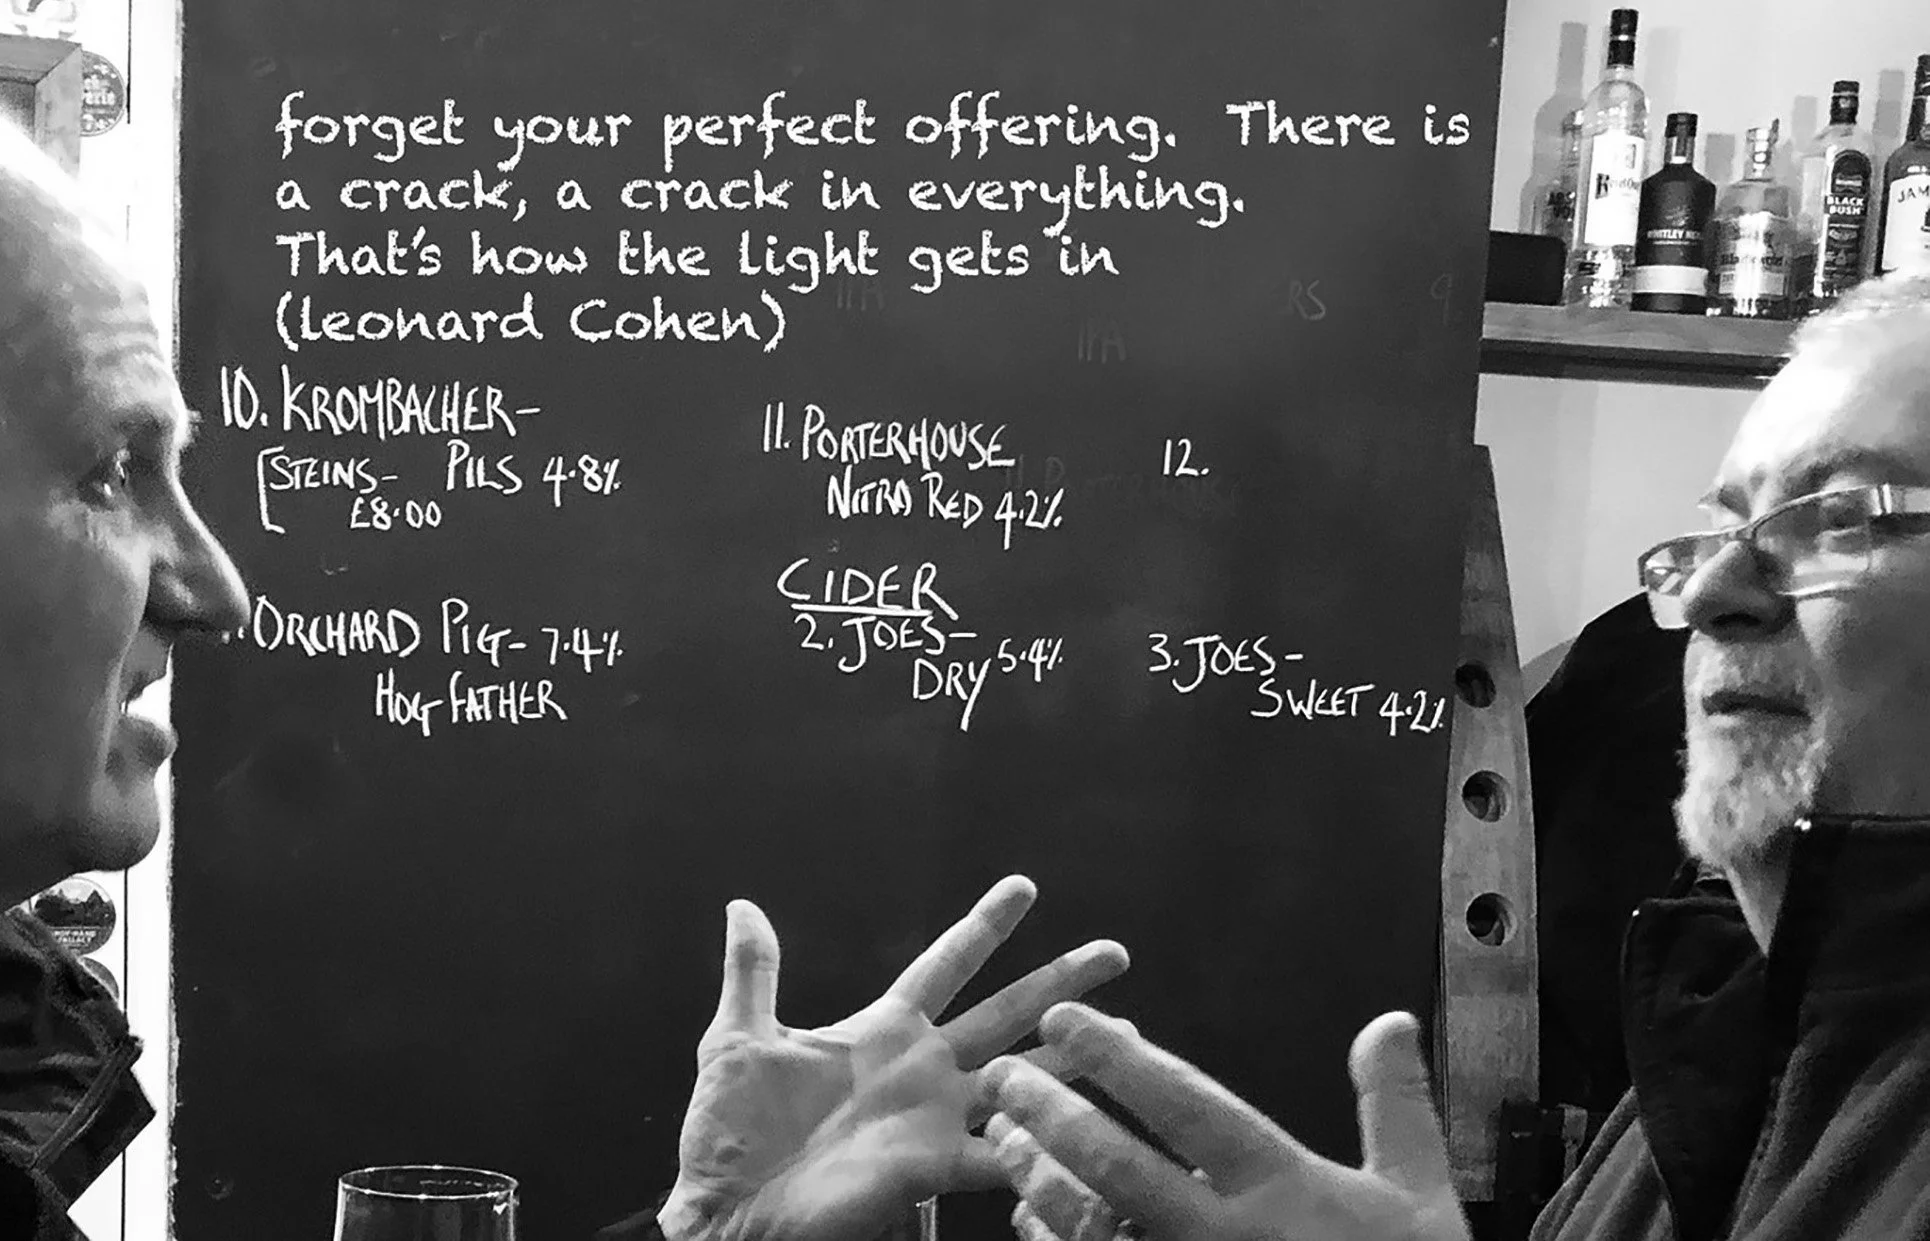 forget your perfect offering. There is
a crack, a crack in everything.
That's how the light gets in
(leonard Cohen)
10. KROMBACHER-
[STEINS- PILS 4.8%
£8.00
11. PORTERHOUSE
NITRO RED 4.2%
12.
CIDER
ORCHARD PIG- 7.4%
HOGFATHER
2. JOES-
DRY 5.4%
3. JOES-
SWEET 4.2%
IPA
IPA
RS
9
WHITLEY
BLACK
BUSH
JAM